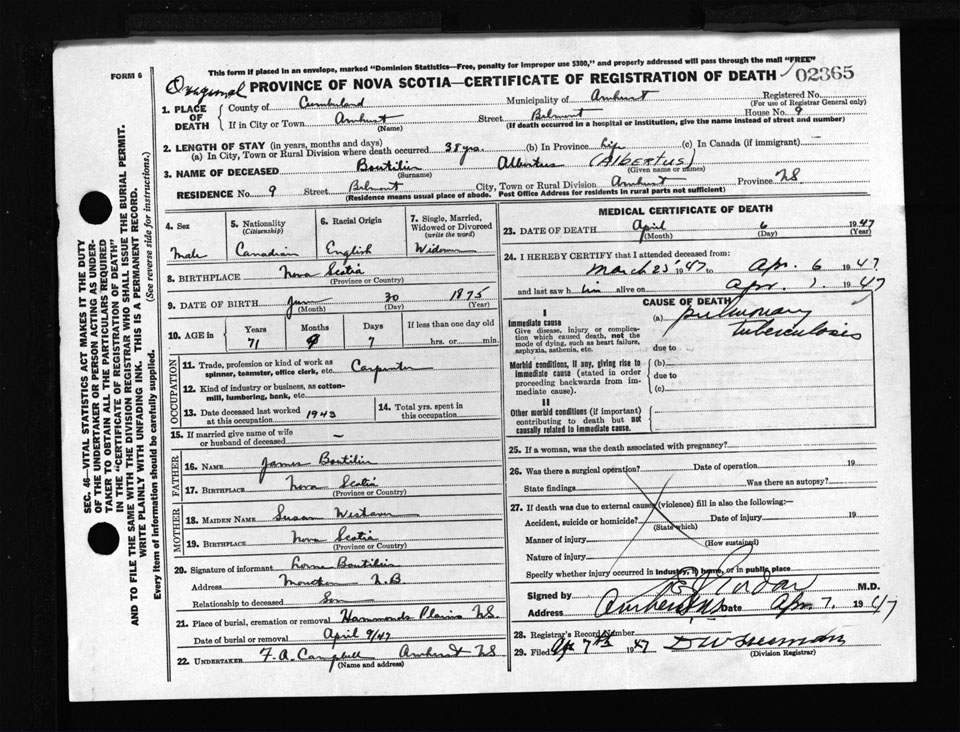 This form if placed in an envelope, marked "Dominion Statistics—Free, penalty for improper use $300," and properly addressed will pass through the mail "FREE"
FORM 6
PROVINCE OF NOVA SCOTIA—CERTIFICATE OF REGISTRATION OF DEATH
02365
1. PLACE OF DEATH
County of Cumberland
Municipality of Amherst
Registered No.
(For use of Registrar General only)
If in City or Town Amherst
(Name)
Street Belmont
House No. 9
(If death occurred in a hospital or institution, give the name instead of street and number)
2. LENGTH OF STAY (in years, months and days)
(a) In City, Town or Rural Division where death occurred 38 yrs. (b) In Province Life (c) In Canada (if immigrant)
3. NAME OF DECEASED Boutilier Albertus (ALBERTUS)
(Surname) (Given name or names)
RESIDENCE No. 9 Street Belmont City, Town or Rural Division Amherst Province NS
(Residence means usual place of abode. Post Office Address for residents in rural parts not sufficient)
SEC. 46—VITAL STATISTICS ACT MAKES IT THE DUTY
OF THE UNDERTAKER OR PERSON ACTING AS UNDER-
TAKER TO OBTAIN ALL THE PARTICULARS REQUIRED
IN THE "CERTIFICATE OF REGISTRATION OF DEATH"
AND TO FILE THE SAME WITH THE DIVISION REGISTRAR WHO SHALL ISSUE THE BURIAL PERMIT.
WRITE PLAINLY WITH UNFADING INK. THIS IS A PERMANENT RECORD.
Every item of information should be carefully supplied. (See reverse side for instructions.)
4. Sex
Male
5. Nationality
(Citizenship)
Canadian
6. Racial Origin
English
7. Single, Married,
Widowed or Divorced
(write the word)
Widower
8. BIRTHPLACE Nova Scotia
(Province or Country)
9. DATE OF BIRTH 30 1875
(Month) (Day) (Year)
10. AGE in
Years Months Days If less than one day old
71 7 hrs. or min.
OCCUPATION
11. Trade, profession or kind of work as
spinner, teamster, office clerk, etc. Carpenter
12. Kind of industry or business, as cotton-
mill, lumbering, bank, etc.
13. Date deceased last worked
at this occupation 1943
14. Total yrs. spent in
this occupation
15. If married give name of wife
or husband of deceased –
FATHER
16. NAME James Boutilier
17. BIRTHPLACE Nova Scotia
(Province or Country)
MOTHER
18. MAIDEN NAME Susan
19. BIRTHPLACE Nova Scotia
(Province or Country)
20. Signature of informant Lorne Boutilier
Address Moncton N.B
Relationship to deceased Son
21. Place of burial, cremation or removal Hammonds Plains NS.
Date of burial or removal April 9/47
22. UNDERTAKER F. A. Campbell Amherst NS
(Name and address)
MEDICAL CERTIFICATE OF DEATH
23. DATE OF DEATH April 6 1947
(Month) (Day) (Year)
24. I HEREBY CERTIFY that I attended deceased from:
March 25 1947 to Apr. 6 1947
and last saw him alive on Apr. 1947
CAUSE OF DEATH
I
Immediate cause
Give disease, injury or complica-
tion which caused death, not the
mode of dying, such as heart failure,
asphyxia, asthenia, etc.
(a) Pulmonary
tuberculosis
due to
Morbid conditions, if any, giving rise to
immediate cause (stated in order
proceeding backwards from im-
mediate cause).
(b)
due to
(c)
II
Other morbid conditions (if important)
contributing to death but not
causally related to immediate cause.
25. If a woman, was the death associated with pregnancy?
26. Was there a surgical operation? Date of operation 19
State findings Was there an autopsy?
27. If death was due to external causes (violence) fill in also the following:—
Accident, suicide or homicide? Date of injury 19
(State which)
Manner of injury
(How sustained)
Nature of injury
Specify whether injury occurred in industry, in home, or in public place
Signed by M.D.
Address Amherst NS Date Apr. 7, 1947
28. Registrar's Record Number
29. Filed Apr 7th 1947
(Division Registrar)